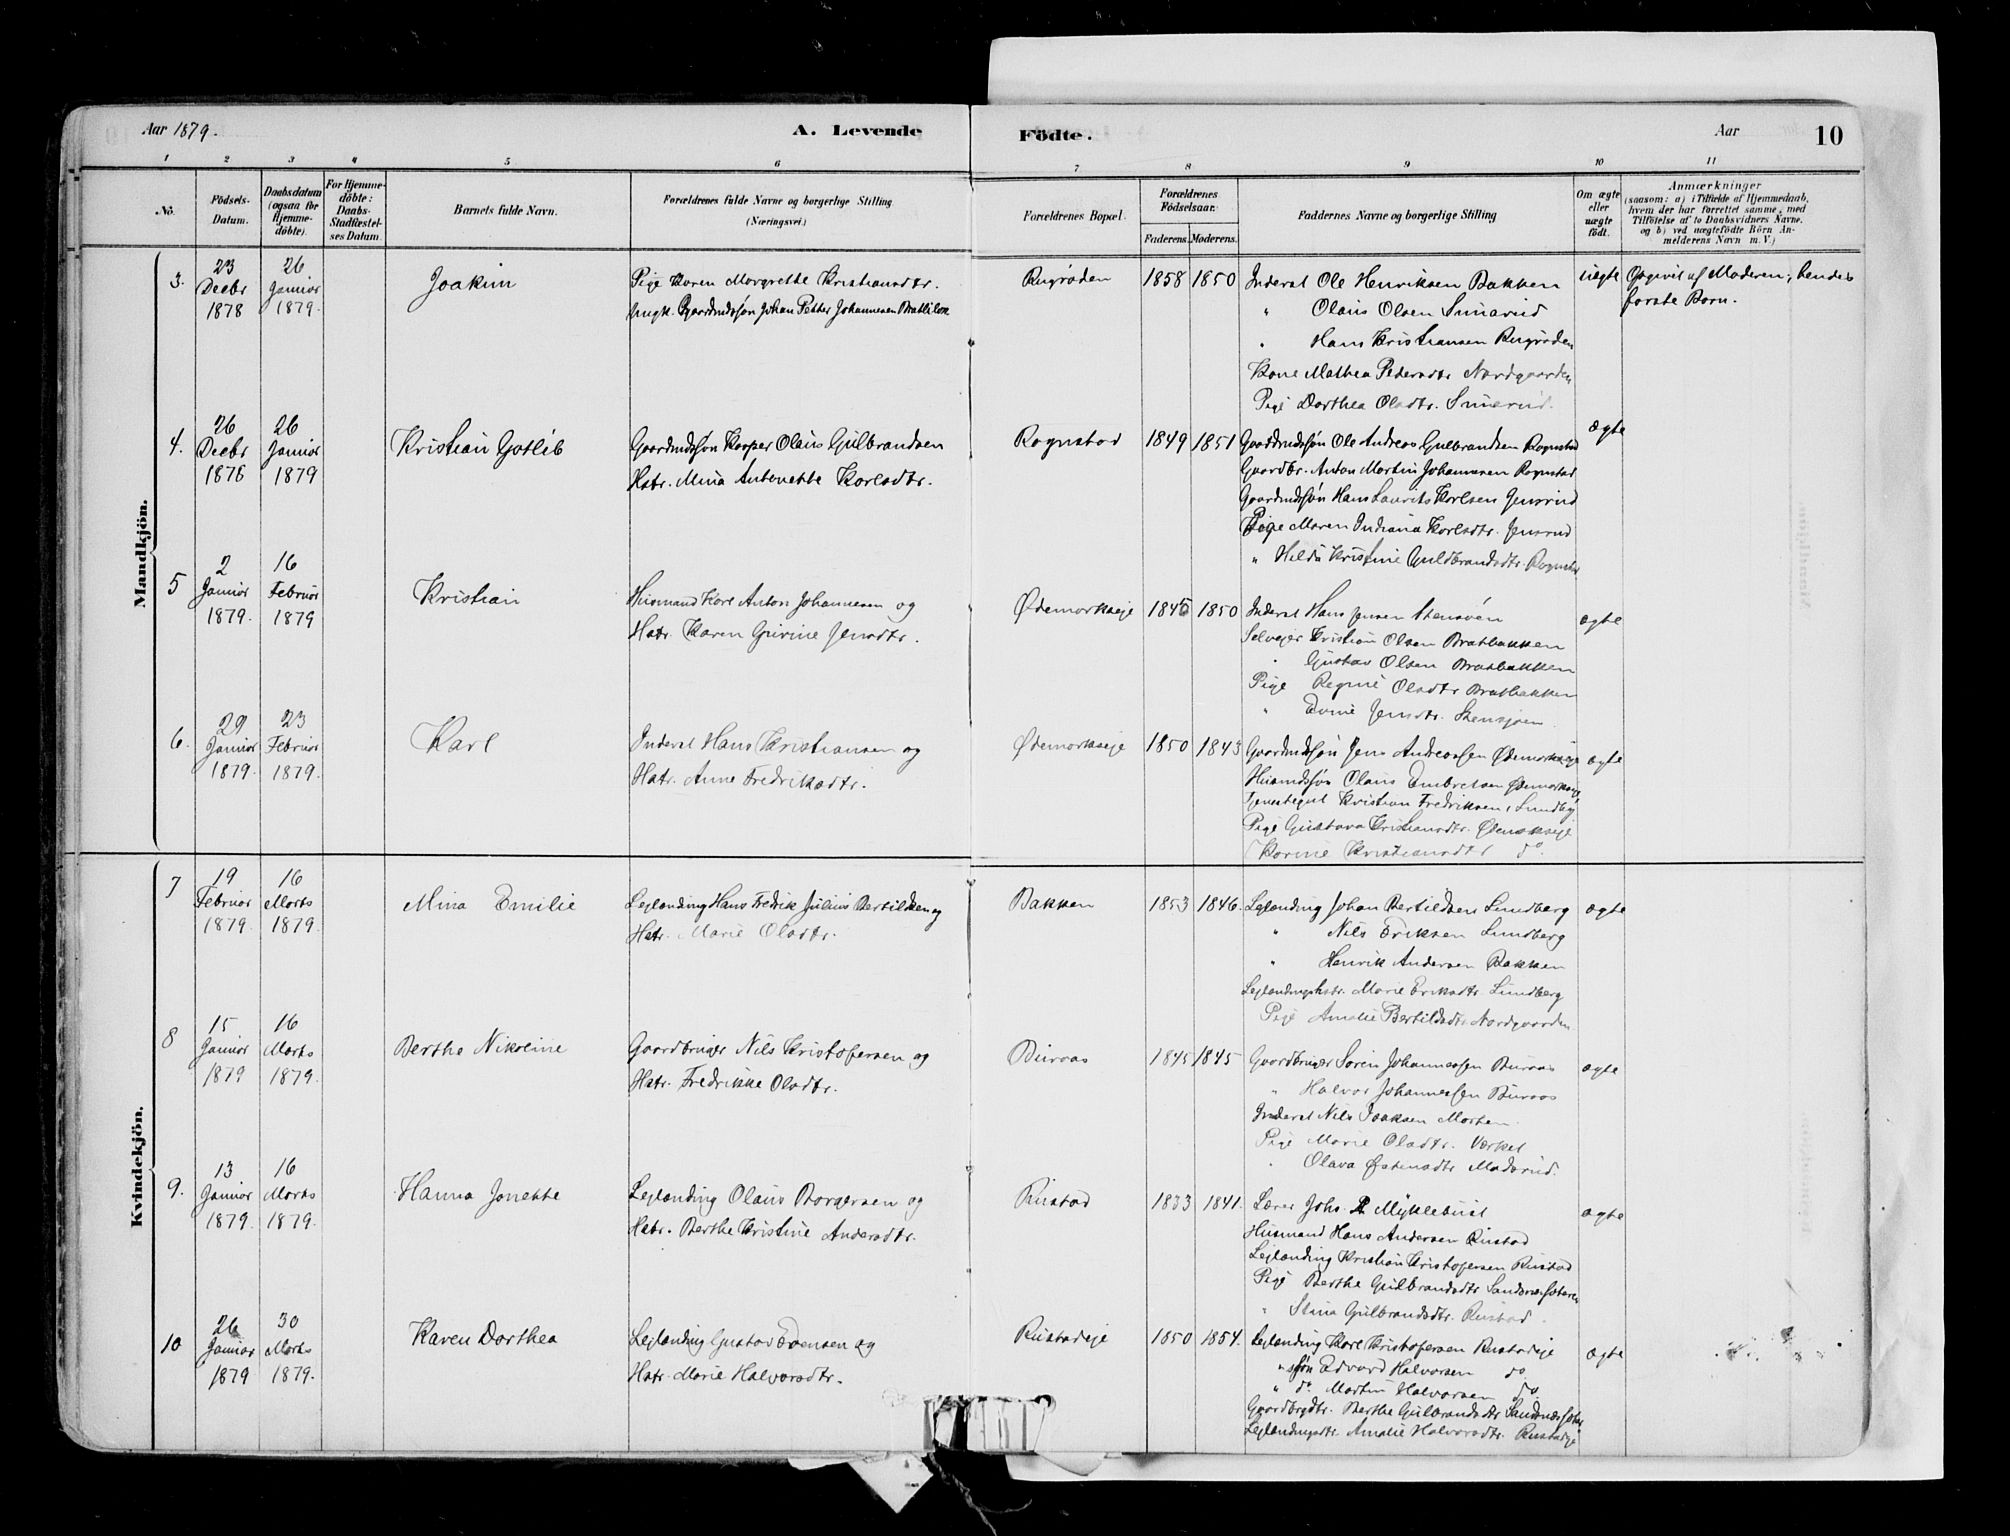 Aar 1879. A. Levende Födte. Aar 10
1 2 3 4 5 6 7 8 9 10 11
No.
Födsels-Datum.
Daabsdatum (ogsaa for Hjemme-döbte).
For Hjemme-döbte: Daabs-Stadfæstel-ses Datum.
Barnets fulde Navn.
Forældrenes fulde Navne og borgerlige Stilling (Næringsvei.)
Forældrenes Bopæl.
Forældrenes Födselsaar.
Faderens. Moderens.
Faddernes Navne og borgerlige Stilling
Om ægte eller uægte födt.
Anmærkninger
(saasom: a) i Tilfælde af Hjemmedaab, hvem der har forrettet samme, med Tilföielse af to Daabsvidners Navne, og b) ved uægtefödte Börn An-melderens Navn m. V.)
Mandkjön.
3. 23 Decbr 1878 26 Januar 1879. Joakim
Pige Karen Margrethe Kristiansdtr.
Ungk. Gaardmdssøn Johan Petter Johannesen Brattilen
Rugrøden 1858 1850
Inderst Ole Henriksen Bakken
" Olaus Olsen Smerud
" Hans Kristiansen Rugrøden
Kone Mathea Pedersdtr Nordgaarden
Pige Dorthea Olsdtr. Smerud.
uægte Opgivet af Moderen; hendes
første Barn.
4. 26 Decbr 1878 26 Januar 1879 Kristian Gotlib
Gaardmdssøn Kasper Olaus Gulbrandsen
Hstr. Mina Antonette Karlsdtr.
Rognstad 1849 1851
Gaardmdssøn Ole Andreas Gulbrandsen Rognstad
Gaardbr. Anton Martin Johannesen Rognstad
Gaardmdssøn Hans Laurits Karlsen Jensrud
Pige Maren Indiana Karlsdtr. Jensrud
" Hilda Kristine Guldbrandsdtr. Rognstad
ægte
5 2 Januar 1879. 16 Februar 1879 Kristian
Husmand Karl Anton Johannesen og
Hstr. Karen Gurine Jensdtr.
Ødemorkseje 1845 1850
Inderst Hans Jensen Stensøen
Selvejer Kristian Olsen Bratbakken
" Gustav Olsen Bratbakken
Pige Regine Olsdtr Bratbakken
" Evine Jensdtr. Stensjøen
ægte
6. 29 Januar 1879. 23 Februar 1879. Karl
Inderst Hans Kristiansen og
Hstr. Anne Fredriksdtr.
Ødemorkseje 1850 1843
Gaardmdssøn Jens Andreassen Ødemorkseje
Husmdssøn Olaus Embretsen Ødemorkseje
Tjenestegut Kristian Fredriksen, Lundby
Pige Gustava Kristiansdtr. Ødemorkseje
" Karine Kristiansdtr do.
ægte
Kvindekjön.
7 19 Februar 1879. 16 Marts 1879. Mina Emilie
Lejlending Hans Fredrik Julius Bertildsen og
Hstr. Marie Olsdtr.
Bakken 1853 1846.
Lejlending Johan Bertildsen Lundberg
" Nils Eriksen Lundberg
" Henrik Andersen Bakken
Lejlendingshstr. Marie Eriksdtr Lundberg
Pige Amalie Bertildsdtr Nordgaarden
ægte
8 15 Januar 1879 16 Marts 1879. Berthe Nikoline
Gaardbruger Nils Kristofersen og
Hstr. Fredrikke Olsdtr.
Buraas 1845 1845
Gaardbruger Søren Johannessen Buraas
" Halvor Johannessen Buraas
Inderst Nils Isaksen Morten
Pige Marie Olsdtr. Værket
" Olava Østensdtr Maderud.
ægte
9. 13 Januar 1879. 16 Marts 1879. Hanna Jonette
Lejlending Olaus Borgersen og
Hstr. Berthe Kristine Andersdtr.
Rustad 1833 1841.
Lærer Johs. P. Myklebust
Husmand Hans Andersen Rustad
Lejlending Kristian Kristofersen Rustad
Pige Berthe Gulbrandsdtr Sandnessæteren
" Stina Gulbrandsdtr. Rustad.
ægte
10 26 Januar 1879 30 Marts 1879. Karen Dorthea
Lejlending Gustav Evensen og
Hstr. Marie Halvorsdtr.
Rustadeje 1850 1854.
Lejlending Karl Kristofersen Rustadeje
" søn Edvard Halvorsen do
" do. Martin Halvorsen do
Gaardbrgdtr. Berthe Gulbrandsdtr Sandnessæter
Lejlendingsdtr. Amalie Halvorsdtr. Rustadeje
ægte